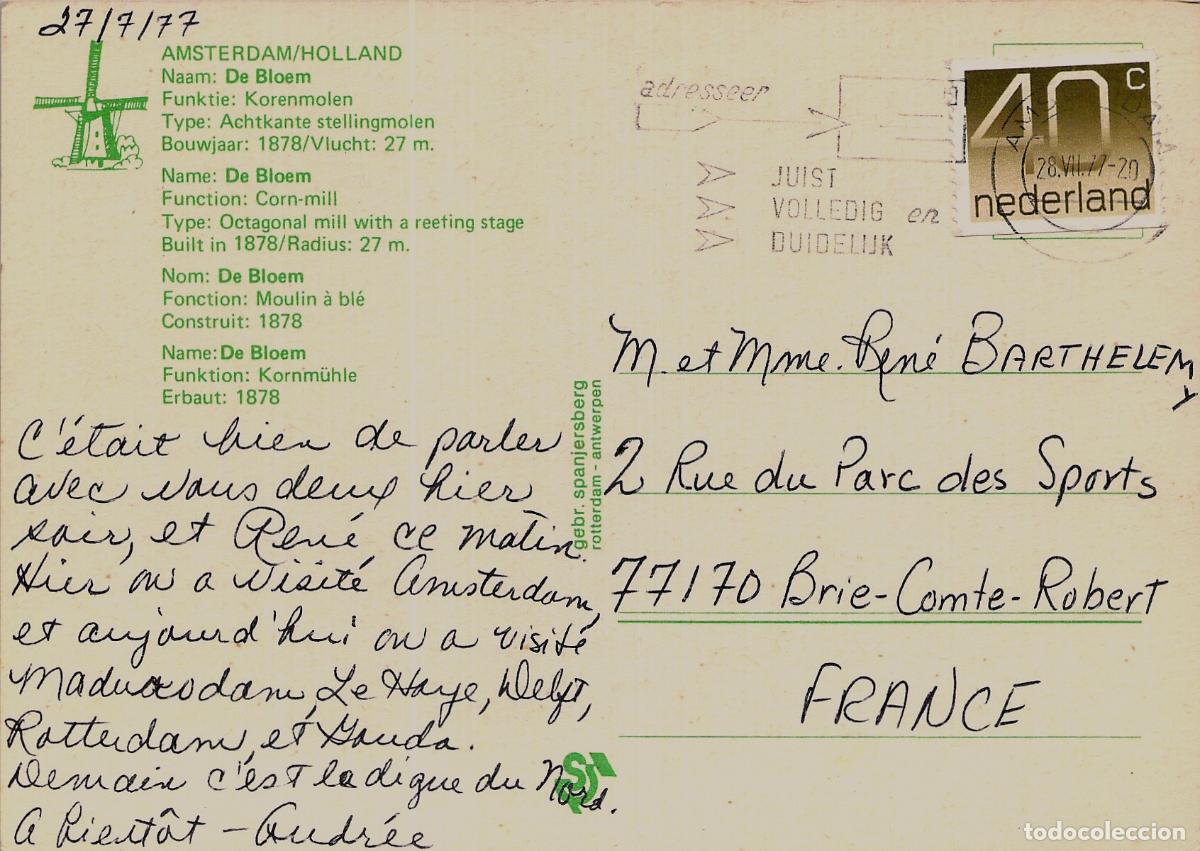 27/7/77
AMSTERDAM/HOLLAND
Naam: De Bloem
Funktie: Korenmolen
Type: Achtkante stellingmolen
Bouwjaar: 1878/Vlucht: 27 m.
Name: De Bloem
Function: Corn-mill
Type: Octagonal mill with a reefing stage
Built in 1878/Radius: 27 m.
Nom: De Bloem
Fonction: Moulin à blé
Construit: 1878
Name: De Bloem
Funktion: Kornmühle
Erbaut: 1878
C'était bien de parler
avec vous deux hier
soir, et René ce matin.
Hier on a visité Amsterdam,
et aujourd'hui on a visité
Madurodam, Le Haye, Delft,
Rotterdam, et Gouda.
Demain c'est la digue du Nord.
A bientôt - Andrée
gebr. spanjersberg
rotterdam - antwerpen
adresseer
JUIST
VOLLEDIG en
DUIDELIJK
40 c
nederland
28.VII.77-20
M. et Mme. René BARTHELEMY
2 Rue du Parc des Sports
77170 Brie-Comte-Robert
FRANCE
todocoleccion